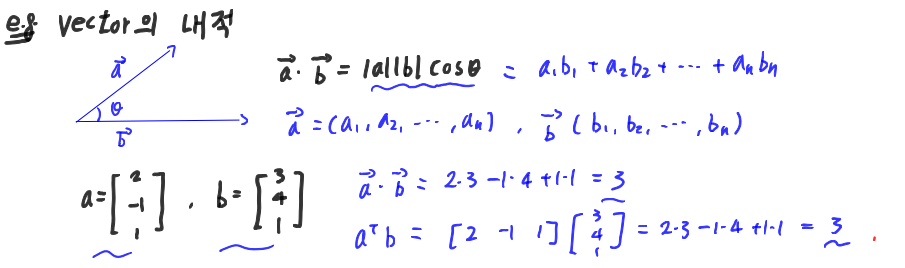 e.g vector의 내적
a⃗ · b⃗ = |a||b| cosθ = a₁b₁ + a₂b₂ + ··· + aₙbₙ
a⃗
θ
b⃗
a⃗ = (a₁, a₂, ···, aₙ), b⃗ (b₁, b₂, ···, bₙ)
a = [2 -1 1], b = [3 4 1]
a⃗ · b⃗ = 2·3 -1·4 +1·1 = 3
aᵀb = [2 -1 1] [3 4 1] = 2·3 -1·4 +1·1 = 3.